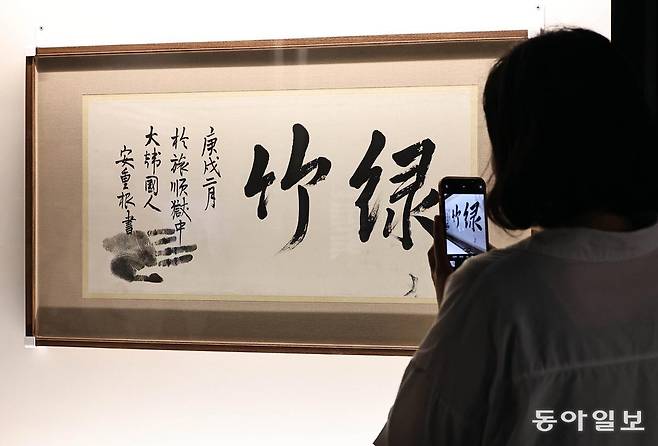 綠竹
庚戌二月
於旅順獄中
大韓國人
安重根書
竹綠
동아일보